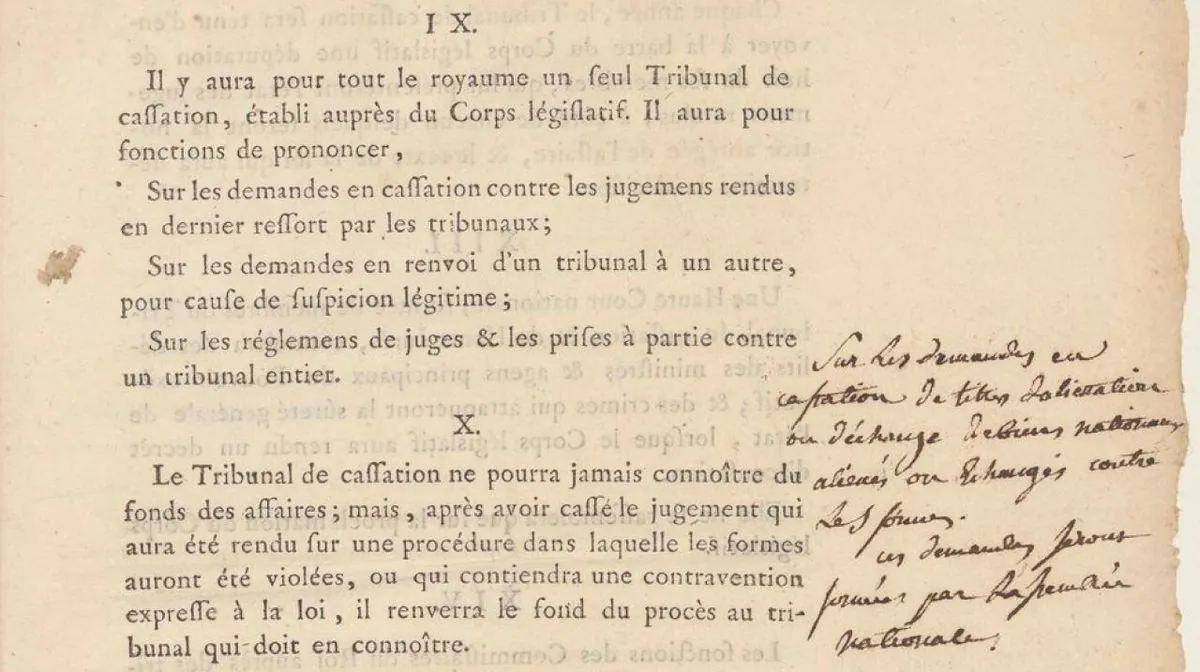 IX.
Il y aura pour tout le royaume un ſeul Tribunal de
caſſation, établi auprès du Corps légiſlatif. Il aura pour
fonctions de prononcer,
Sur les demandes en caſſation contre les jugemens rendus
en dernier reſſort par les tribunaux;
Sur les demandes en renvoi d'un tribunal à un autre,
pour cauſe de ſuſpicion légitime;
Sur les réglemens de juges & les priſes à partie contre
un tribunal entier.
X.
Le Tribunal de caſſation ne pourra jamais connoître du
fonds des affaires; mais, après avoir caſſé le jugement qui
aura été rendu ſur une procédure dans laquelle les formes
auront été violées, ou qui contiendra une contravention
expreſſe à la loi, il renverra le fond du procès au tri-
bunal qui doit en connoître.
Sur les demandes en
caſſation de titres d'alienation
ou d'échange de biens nationaux
aliénés ou Echangés contre
les formes.
ces demandes seront
formées par
nationale.